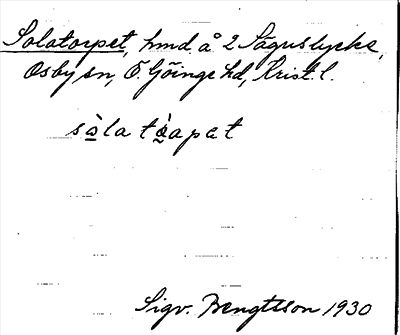 Solatorpet, hmd å 2 Såguslycke,
Osby sn, Ö Göinge hd, Krist. l.
sòla tòapat
Sigv. Bengtsson 1930